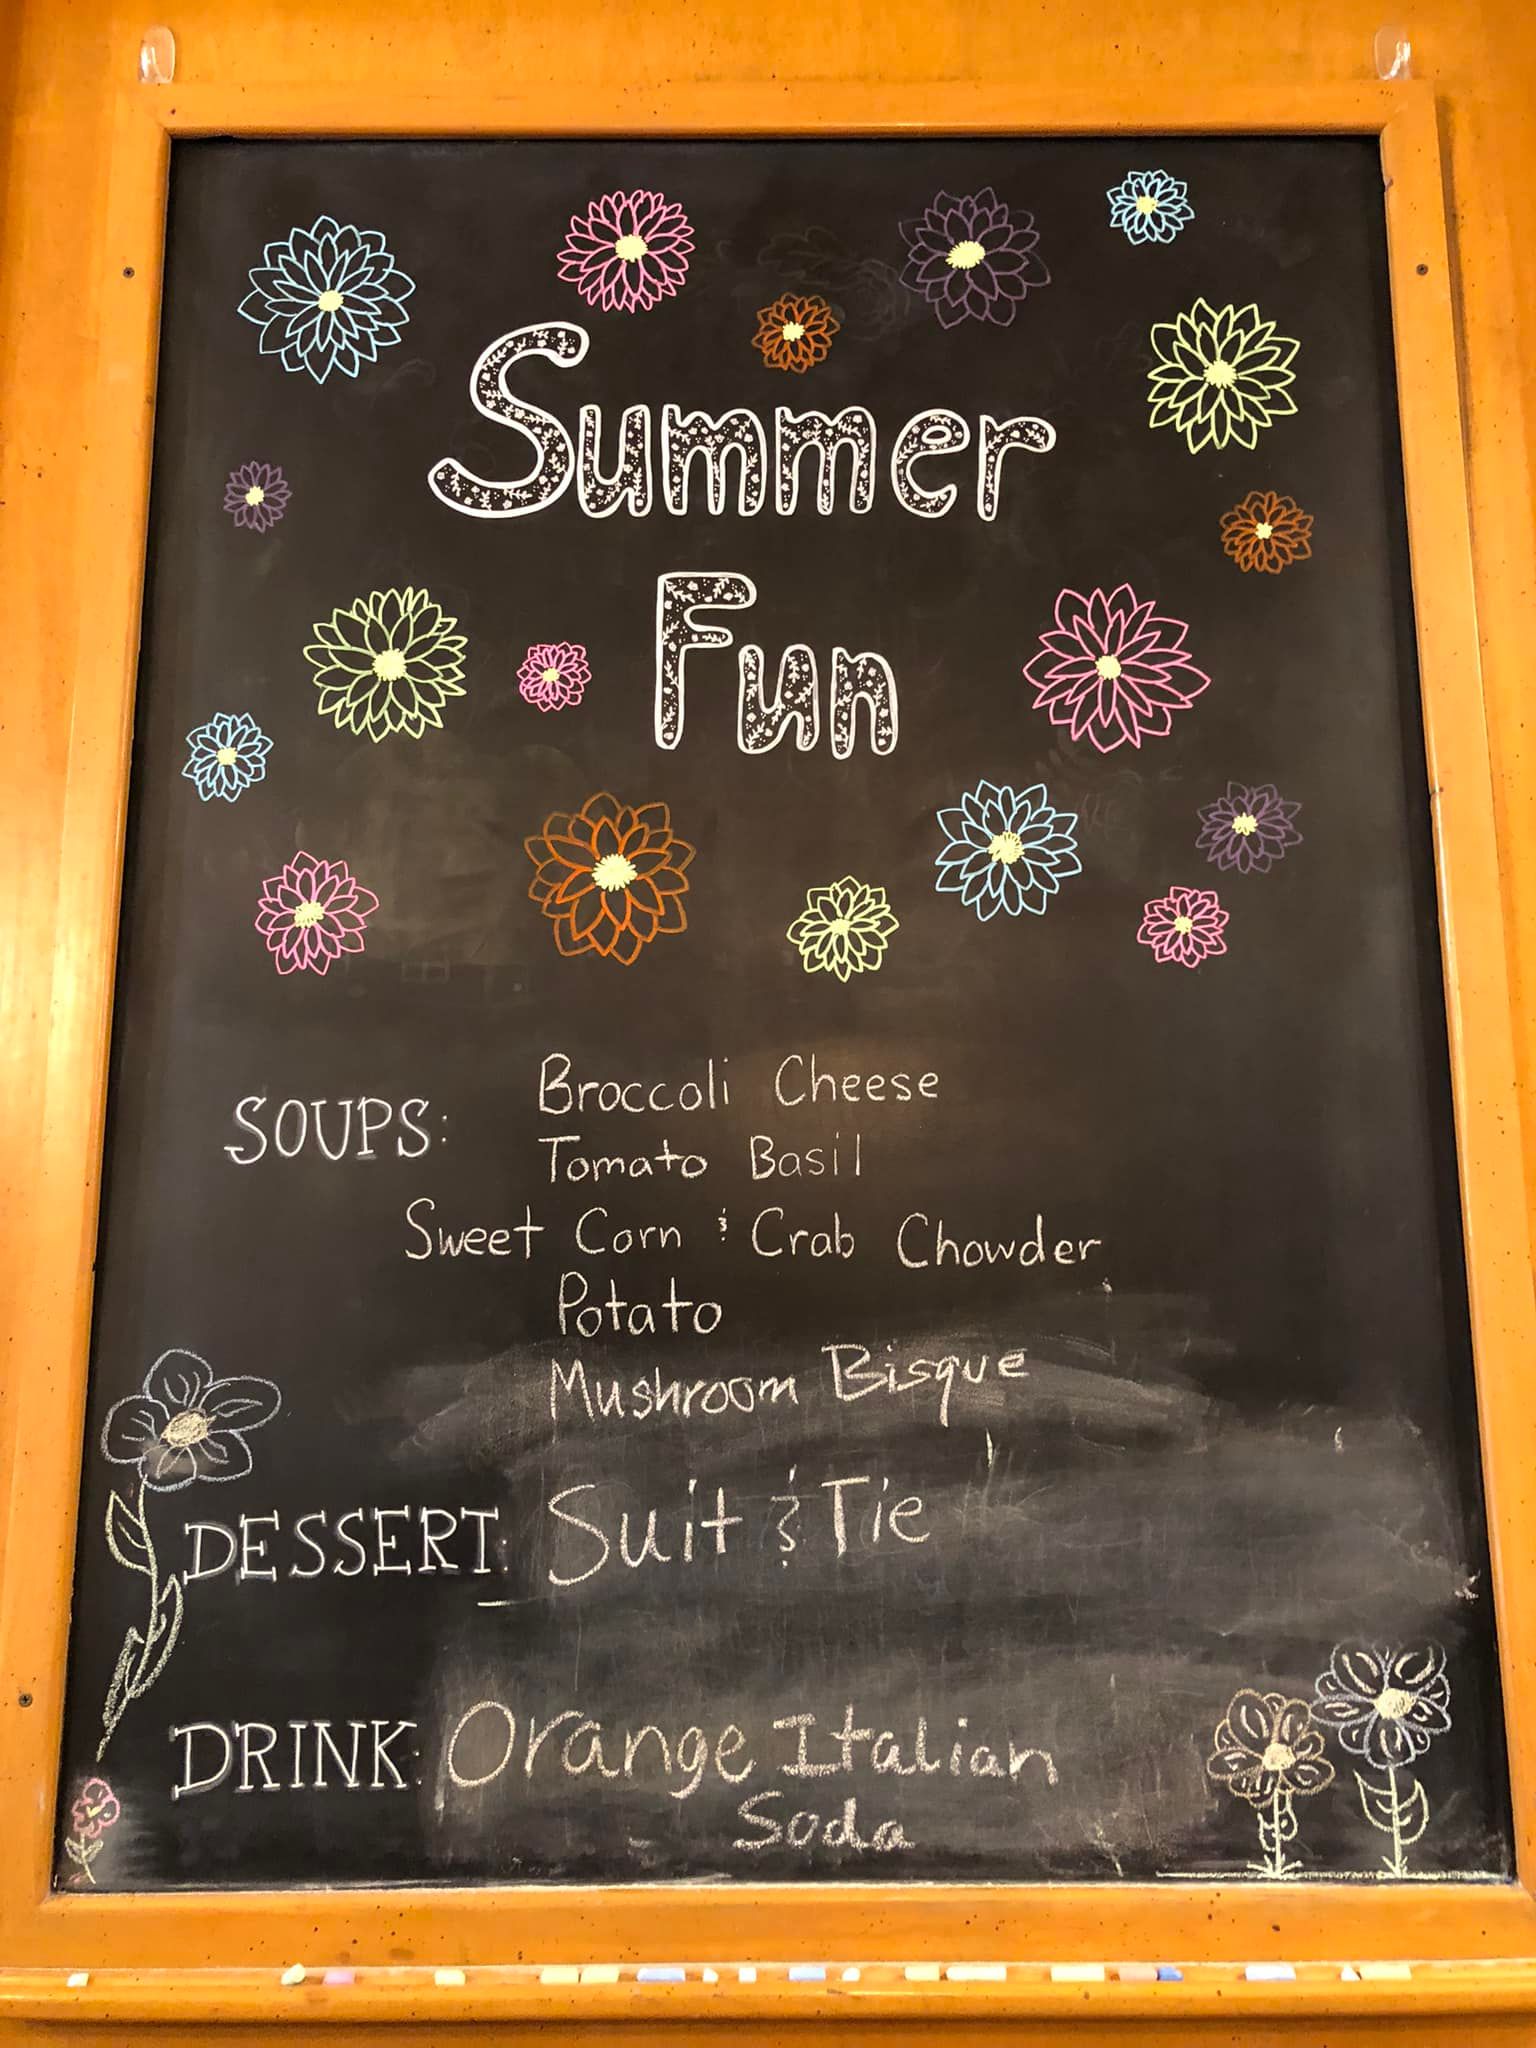 Summer
Fun
SOUPS: Broccoli Cheese
Tomato Basil
Sweet Corn & Crab Chowder
Potato
Mushroom Bisque
DESSERT: Suit & Tie
DRINK: Orange Italian
Soda